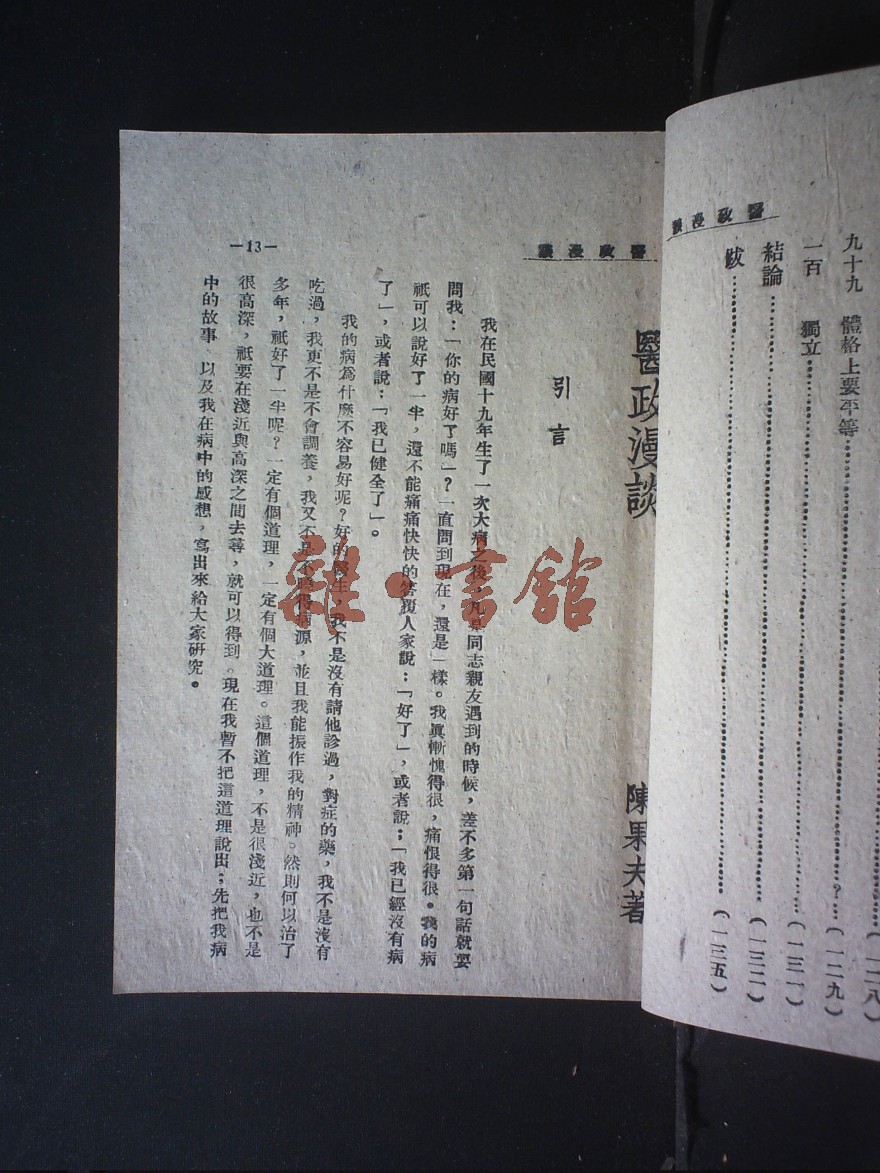 醫政漫談
（一二八）
九十九　體格上要平等……？…（一二九）
一百　獨立……（一三一）
結論……（一三二）
跋……（一三五）
醫政漫談
醫政漫談　陳果夫著
引言
我在民國十九年生了一次大病之後，凡是同志親友遇到的時候，差不多第一句話就要
問我：「你的病好了嗎」？一直問到現在，還是一樣。我眞慚愧得很，痛恨得很。我的病
祇可以說好了一半，還不能痛痛快快的答覆人家說：「好了」，或者說：「我已經沒有病
了」，或者說：「我已健全了」。
我的病爲什麼不容易好呢？好的醫生，我不是沒有請他診過，對症的藥，我不是沒有
吃過，我更不是不會調養，我又不是不得病源，並且我能振作我的精神。然則何以治了
多年，祇好了一半呢？一定有個道理，一定有個大道理。這個道理，不是很淺近，也不是
很高深，祇要在淺近與高深之間去尋，就可以得到。現在我暫不把這道理說出：先把我病
中的故事　以及我在病中的感想，寫出來給大家研究。
—13—
雜·書館